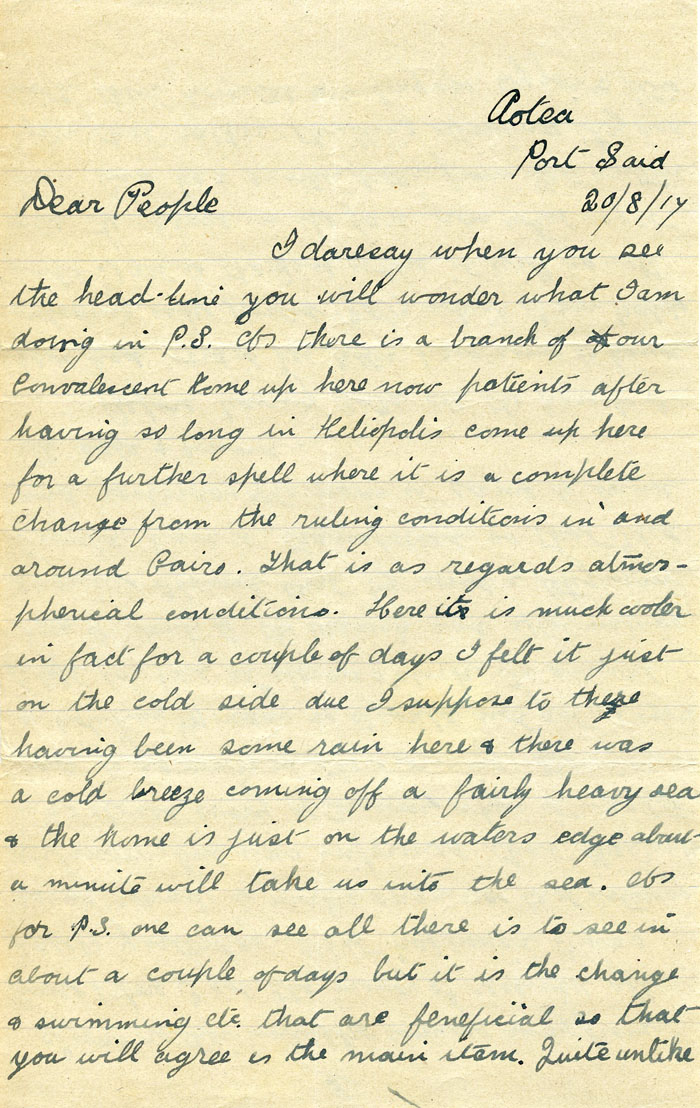 Aotea
Port Said
20/8/17
Dear People
I daresay when you see
the head-line you will wonder what I am
doing in P.S. As there is a branch of of our
Convalescent Home up here now patients after
having so long in Heliopolis come up here
for a further spell where it is a complete
change from the ruling conditions in and
around Cairo. That is as regards atmos-
pherical conditions. Here it is much cooler
in fact for a couple of days I felt it just
on the cold side due I suppose to there
having been some rain here & there was
a cold breeze coming off a fairly heavy sea
& the Home is just on the waters edge about
a minute will take us into the sea. As
for P.S. one can see all there is to see in
about a couple of days but it is the change
& swimming etc. that are beneficial so that
you will agree is the main item. Quite unlike